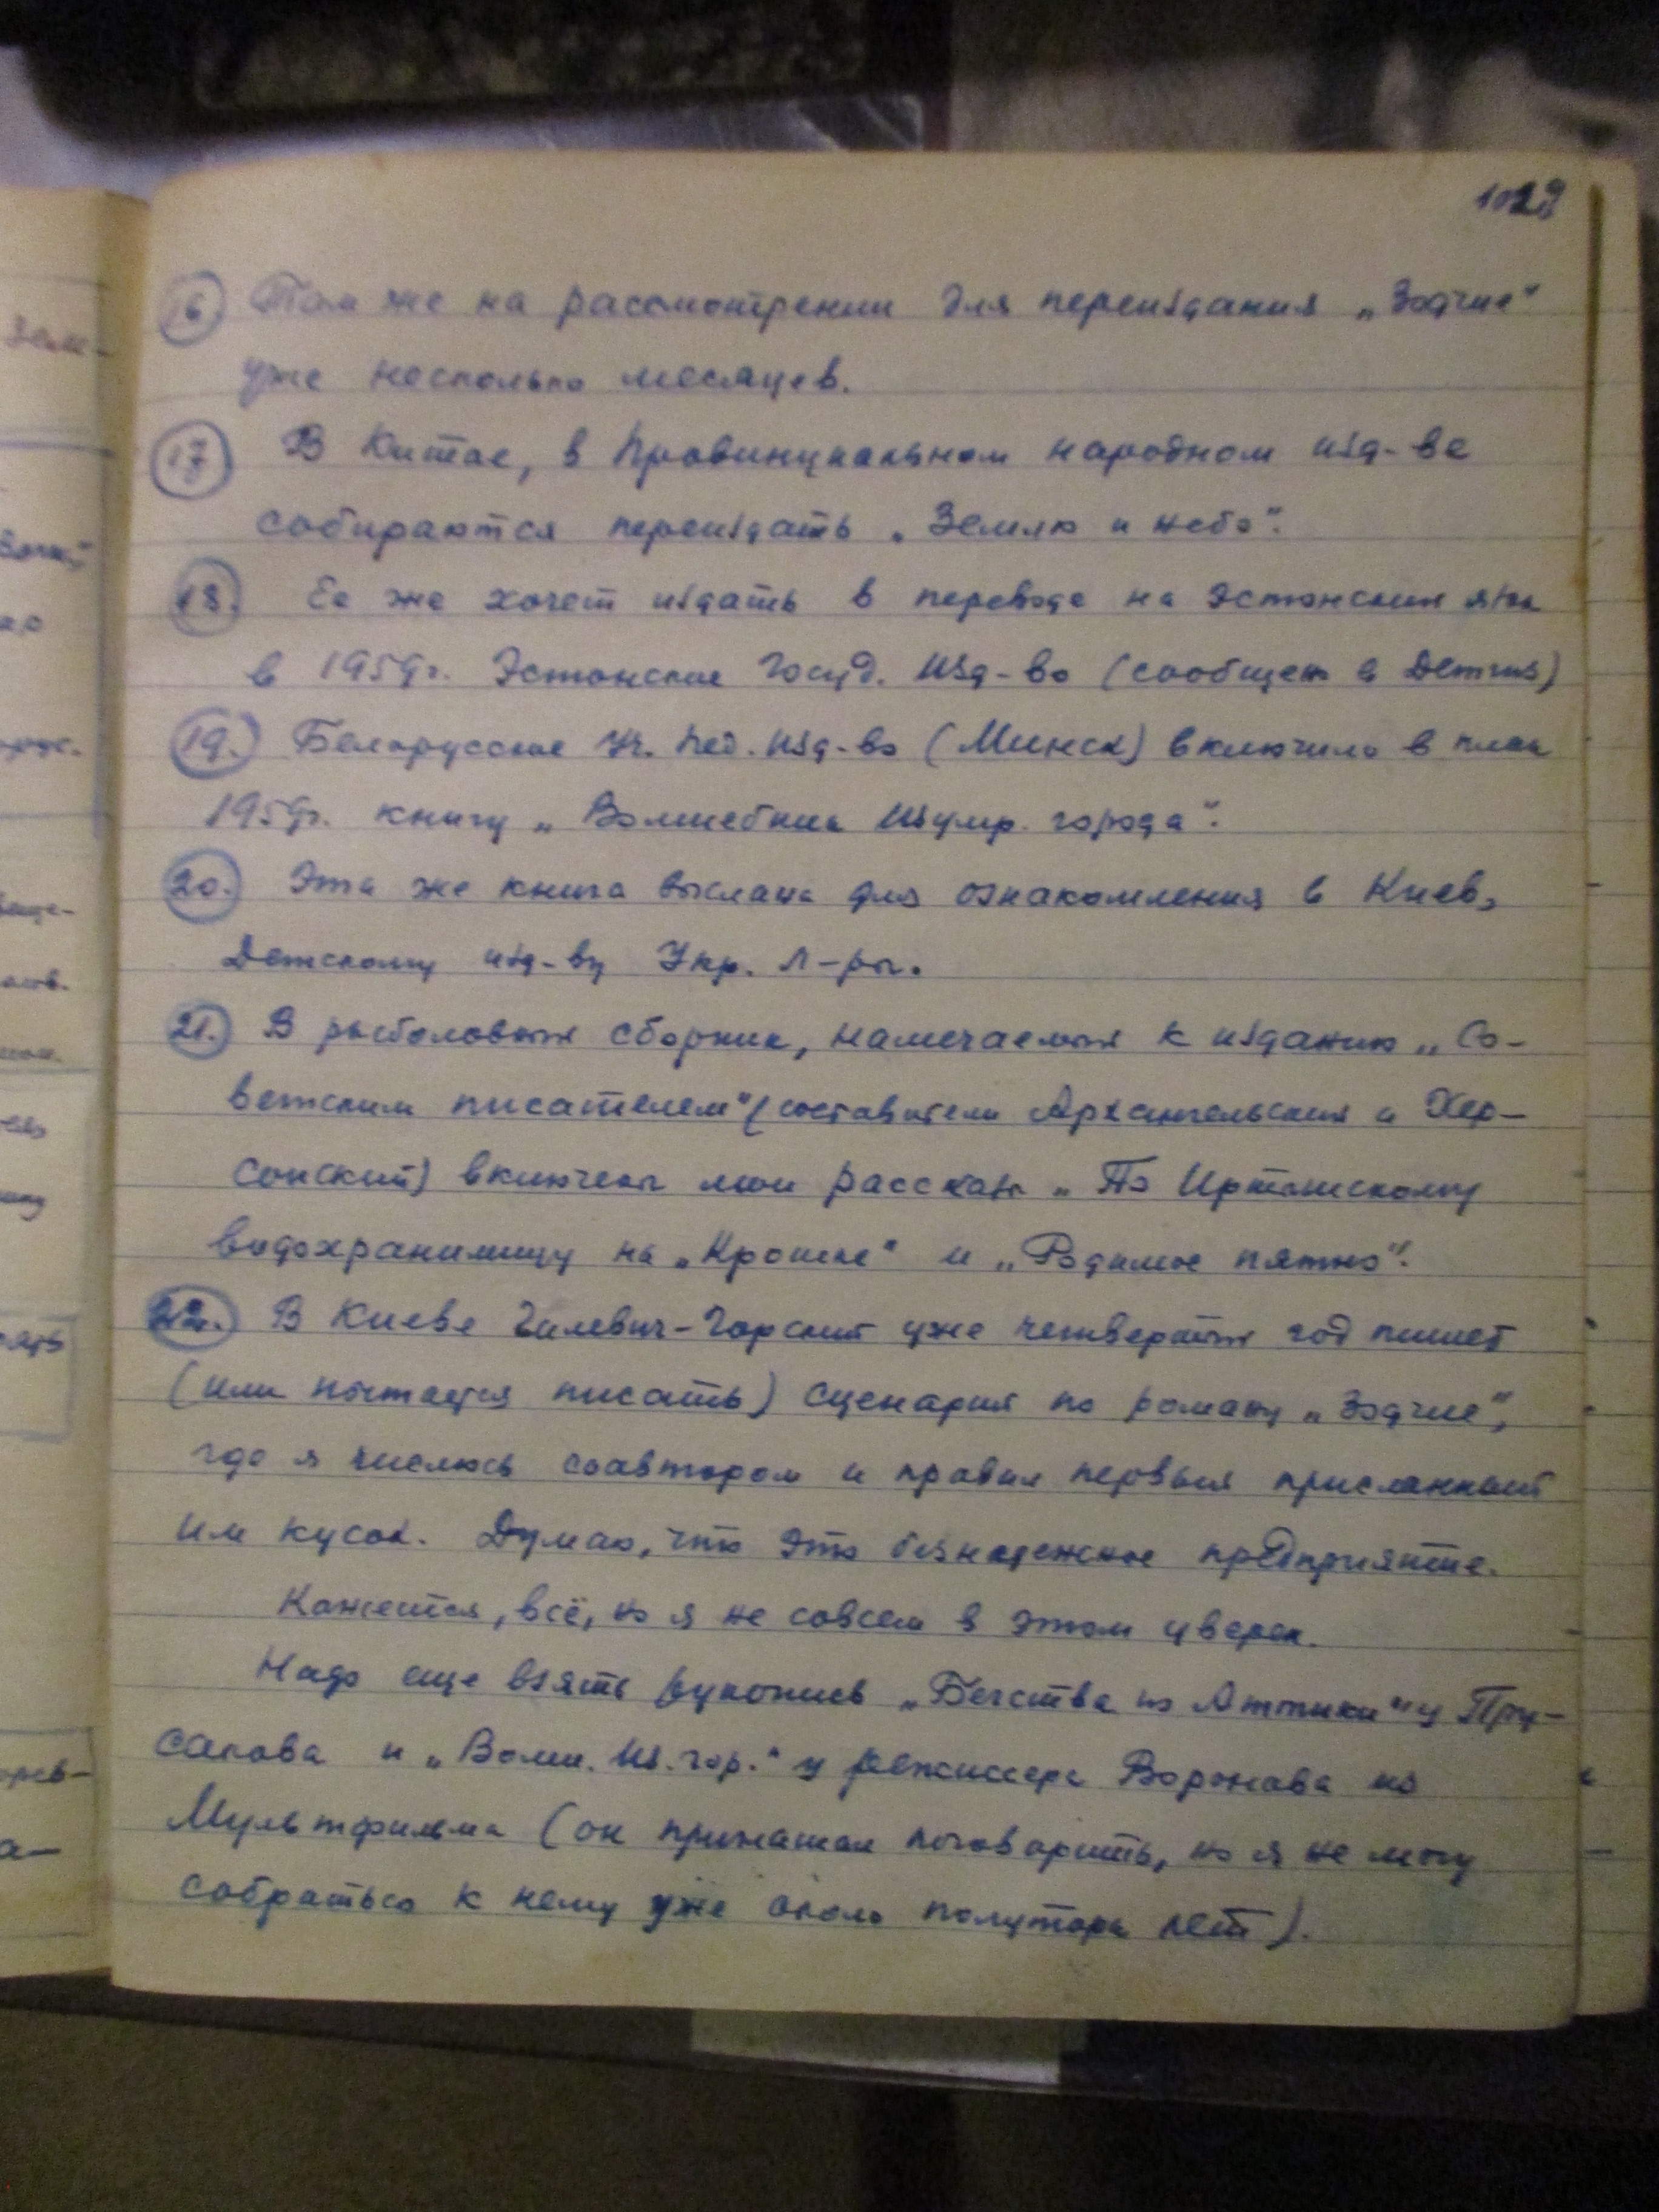 1029
16. Там же на рассмотрении для переиздания „Зодчие"
уже несколько месяцев.
17. В Китае, в Провинциальном народном изд-ве
собираются переиздать „Землю и небо".
18. Ее же хочет издать в переводе на эстонский язык
в 1959г. Эстонское Госуд. Изд-во (сообщен. в Детгиз)
19. Белорусское Уч. Пед. Изд-во (Минск) включило в план
1959г. книгу „Волшебник Изумр. города".
20. Эта же книга выслана для ознакомления в Киев,
Детскому изд-ву Укр. Л-ры.
21. В рыболовный сборник, намечаемый к изданию „Со-
ветским писателем" (составители Архангельский и Хер-
сонский) включены мои рассказы „По Иртышскому
водохранилищу на „Крошке" и „Родимое пятно".
22. В Киеве Гилевич-Горский уже четвертый год пишет
(или пытается писать) сценарий по роману „Зодчие",
где я числюсь соавтором и правил первый присланный
им кусок. Думаю, что это безнадежное предприятие.
Кажется, всё, но я не совсем в этом уверен.
Надо еще взять рукопись „Бегства из Аттики" у Пру-
сакова и „Волш. Из. гор." у режиссера Воронова из
Мультфильма (он приглашал поговорить, но я не могу
собраться к нему уже около полутора лет).